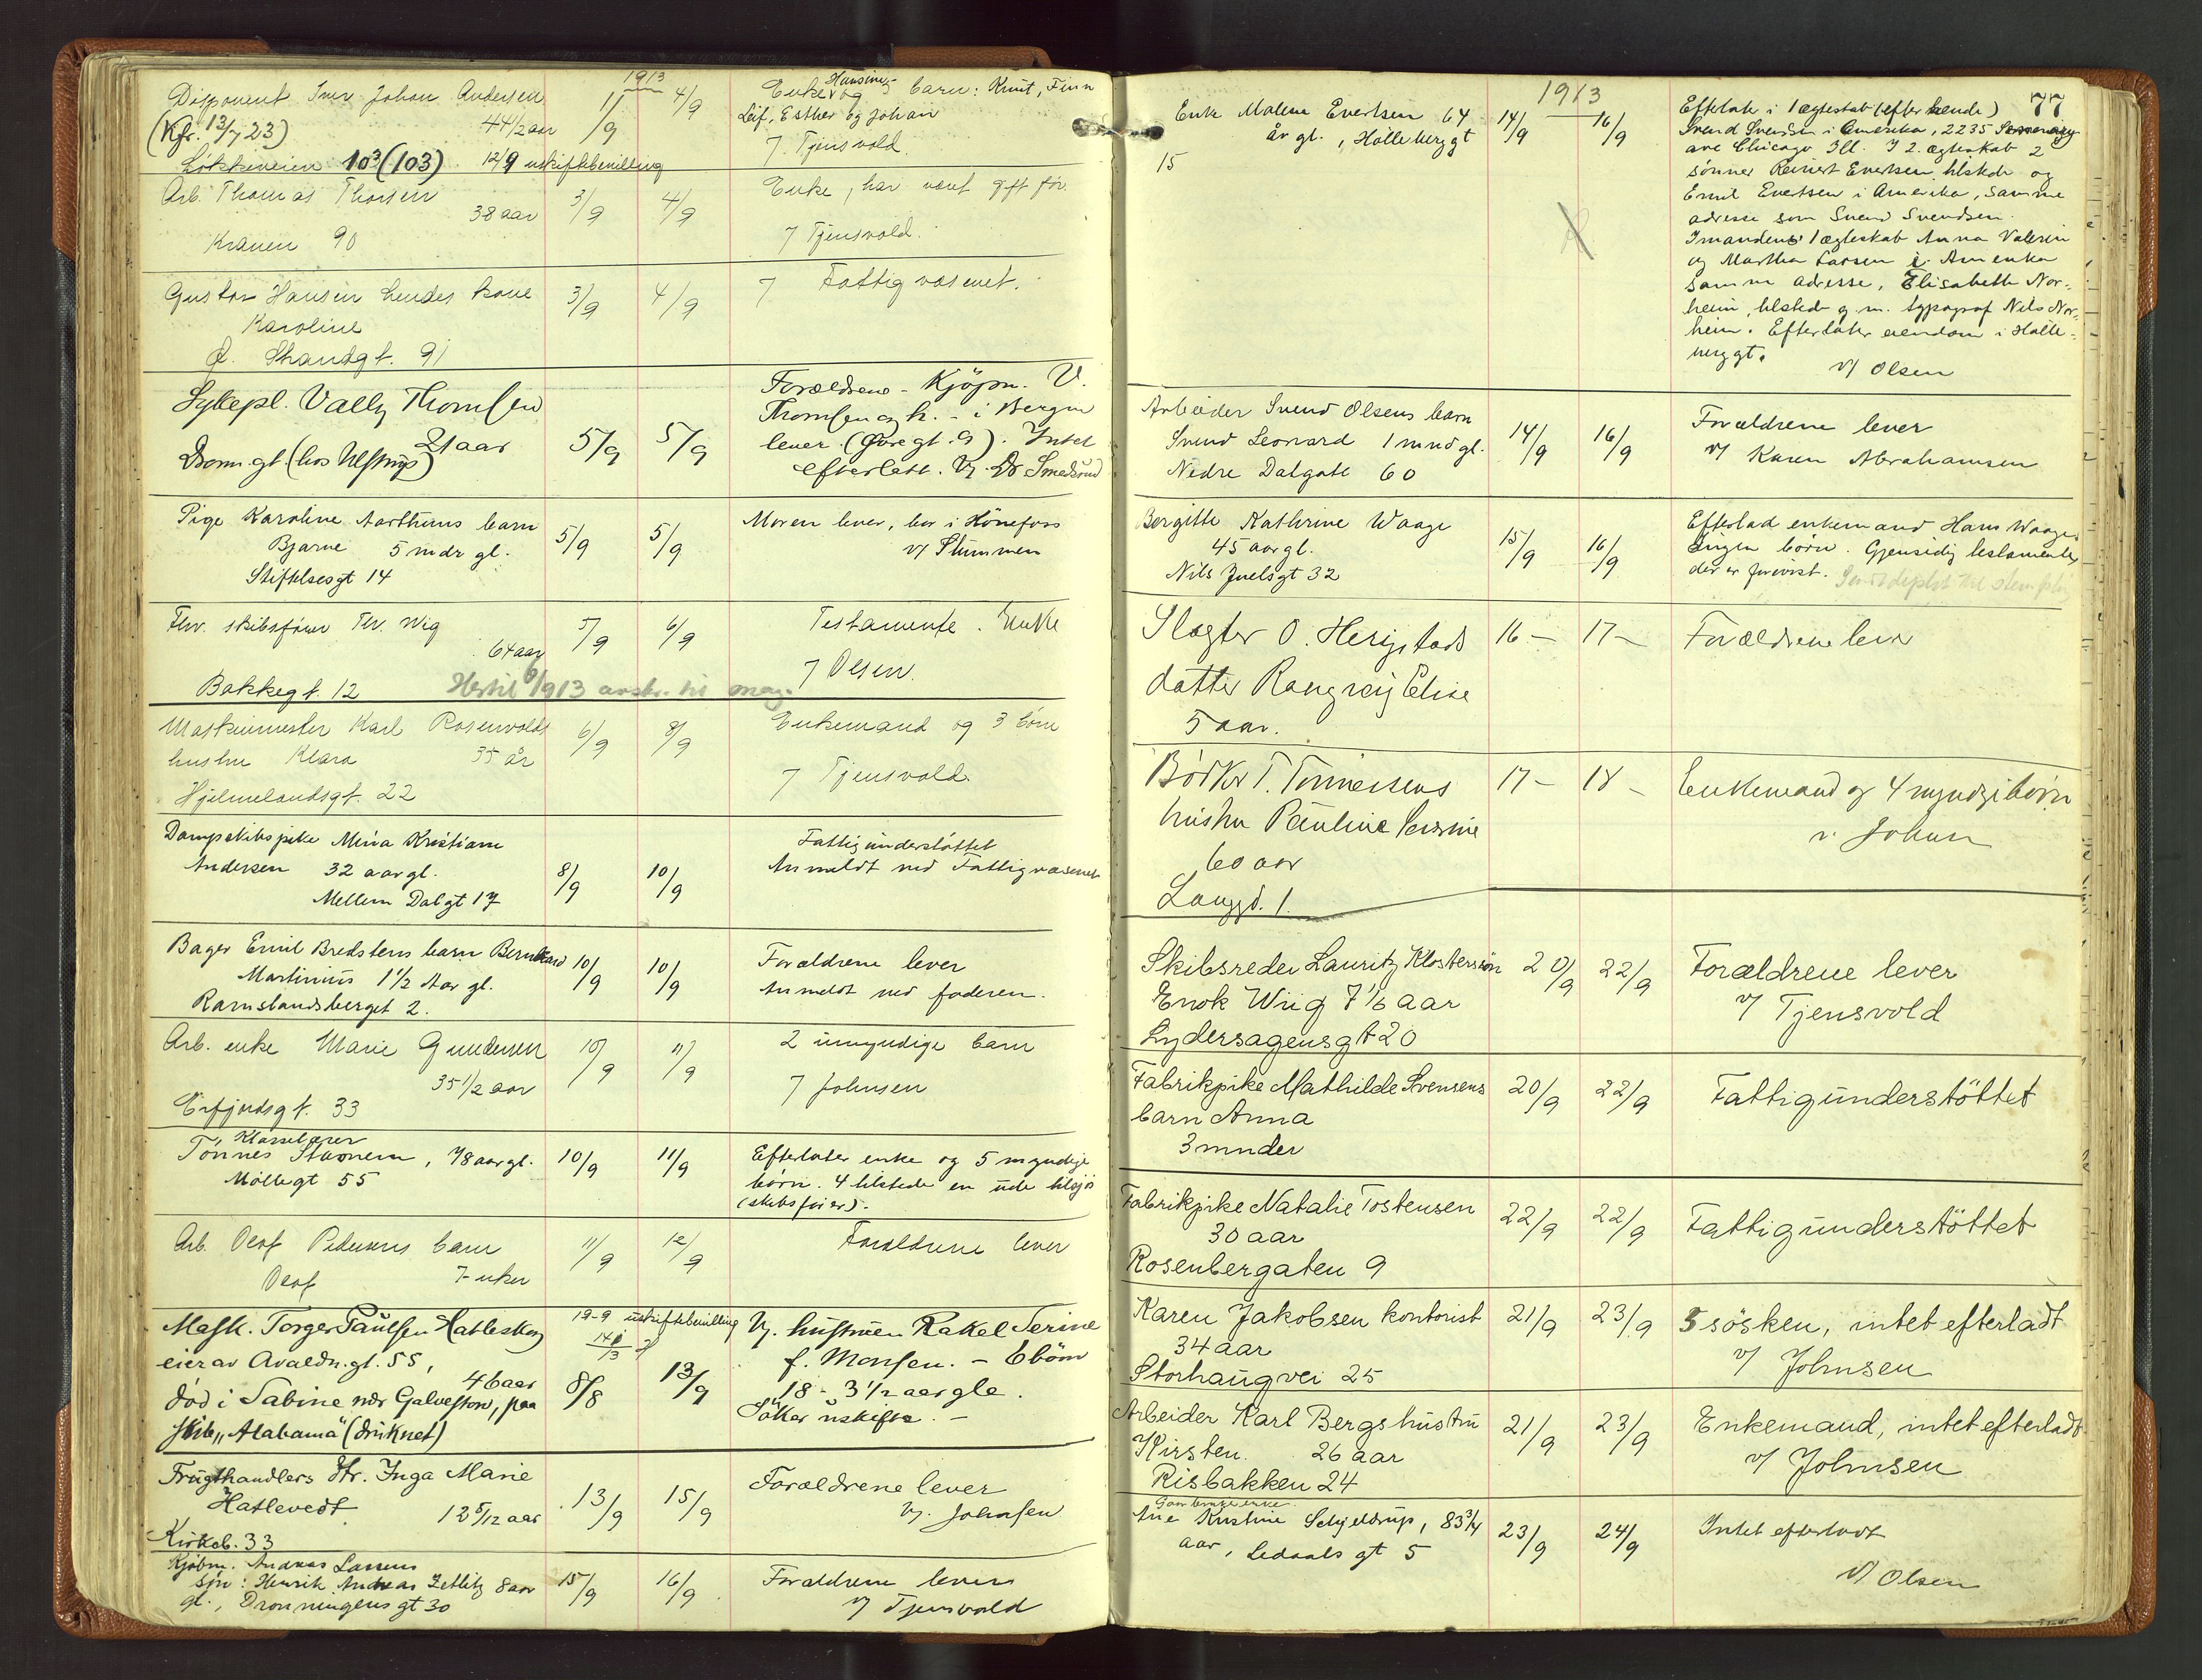 1913
Disponent Iver Johan Andersen
(Kfr. 13/7 23)
44 1/2 aar
1/9
4/9
Enke Hansine og barn: Knut, Finn
Leif, Esther og Johan
7 Tjensvold.
Løkkeveien 103 (103) 12/9 uskiftebevilling
Arb. Thomas Thorsen
38 aar
Kranen 90
3/9
4/9
Enke, har været gift før.
7 Tjensvold.
Gustav Hansen hendes kone
Karoline
Ø. Strandgt. 91
3/9
4/9
7 Fattigvæsenet.
Sykepl. Vally Thomsen
21 aar
Dronn.gt. (hos Ulstrup)
5/9
5/9
Forældrene - Kjöpm. V.
Thomsen og h. - i Bergen
lever (Øvregt. 9). Intet
efterlatt. V. Dr Smedsrud
Pige Karoline Aarthuns barn
Bjarne 5 mdr gl.
Stiftelsesgt 14
5/9
5/9
Moren lever, bor i Hönefoss
v/ Slummen
Fhv. skibsfører Thv. Wig
64 aar
Bakkegt. 12
5/9
6/9
Testamente. Enke
7 Olsen.
Maskinmester Karl Rosenvolds
hustru Klara 35 år
Hjelmelandsgt. 22
6/9
8/9
Enkemand og 3 börn
7 Tjensvold.
Dampskibspike Mina Kristiane
Andersen 32 aar gl.
Mellem Dalgt 17
8/9
10/9
Fattigunderstöttet
Anmeldt ved Fattigvæsenet
Bager Emil Bredstens barn Bernhard
Martinius 1 1/2 Aar gl.
Ramslandsberget 2.
10/9
10/9
Forældrene lever
Anmeldt ved faderen.
Arb. enke Marie Gundersen
35 1/2 aar
Erfjordsgt. 33
10/9
11/9
2 umyndige barn
7 Johnsen
Klasselærer
Tönnes Stavnem, 78 aar gl.
Möllegt 55
10/9
11/9
Efterlater enke og 5 myndige
börn. 4 tilstede en ude tilsjös
(skibsförer).
Arb. Olaf Pedersens barn
Olaf 7 uker
11/9
12/9
Forældrene lever
Mask. Torger Paulsen Hatleskog
eier av Avaldn.gt. 55,
46 aar
död i Sabine nær Galveston, paa
skib "Alabama" (druknet)
19-9 uskiftebevilling
8/8
13/9
V. hustruen Rakel Serine
f. Monsen. - 6 börn
18 - 3 1/2 aar gle.
Söker uskifte. -
Frugthandlers dtr. Inga Marie
Hatlevedt 12 5/12 aar
Kirkeb. 33
13/9
15/9
Forældrene lever
V. Johnsen
Kjöbm. Andreas Larsens
sön: Henrik Andreas Zetlitz 8 aar
gl., Dronningens gt 30
15/9
16/9
Forældrene lever
v/ Tjensvold
1913
77
Enk Malene Evertsen 64
år gl., Holleberggt
15
14/9
16/9
Efterlate i 1 ægteskab (efter hende)
Svend Svendsen i Amerika, 2235
ave Chicago Ill. I 2. ægteskab 2
sönner Reinert Evertsen, tilstede og
Emil Evertsen i Amerika, samme
adresse som Svend Svendsen.
I mandens 1 ægteskab Anna Valerin
og Martha Larsen i Amerika
samme adresse, Elisabeth Nor-
heim, tilstede g. m. typograf Nils Nor-
heim. Efterlater eiendom i Holle-
berggt.
v/ Olsen
Arbeider Svend Olsens barn
Svend Leonard 1 mnd gl.
Nedre Dalgate 60
14/9
16/9
Forældrene lever
v/ Karen Abrahamsen
Bergitte Kathrine Waage
45 aar gl.
Nils Juelsgt 32
15/9
16/9
Efterlad enkemand Hans Waage.
Ingen börn. Gjensidig testamente
der er forevist.
Slagter O. Herigstads
datter Rangveig Elise
5 aar.
16 -
17 -
Forældrene lever
Bödker T. Tönnesens
hustru Pauline Serine
60 aar
Langgd. 1.
17 -
18 -
Enkemand og 4 myndige börn
v. Johnsen
Skibsreder Lauritz Klosters sön
Enok Wiig 7 1/6 aar
Lydersagensgt 20
20/9
22/9
Forældrene lever
v/ Tjensvold
Fabrikpike Mathilde Svensens
barn Anna
3 mnder
20/9
22/9
Fattigunderstöttet
Fabrikpike Natalie Tostensen
30 aar
Rosenbergaten 9
22/9
22/9
Fattigunderstöttet
Karen Jakobsen kontorist
34 aar
Storhaugvei 25
21/9
23/9
5 sösken, intet efterladt
v/ Johnsen
Arbeider Karl Bergs hustru
Kirsten. 26 aar
Risbakken 24
21/9
23/9
Enkemand, intet efterladt
v/ Johnsen
Gaardbruker enke
Ane Kristine Schjeldrup, 83 3/4
aar, Ledaals gt 5
23/9
24/9
Intet efterladt
v/ Olsen